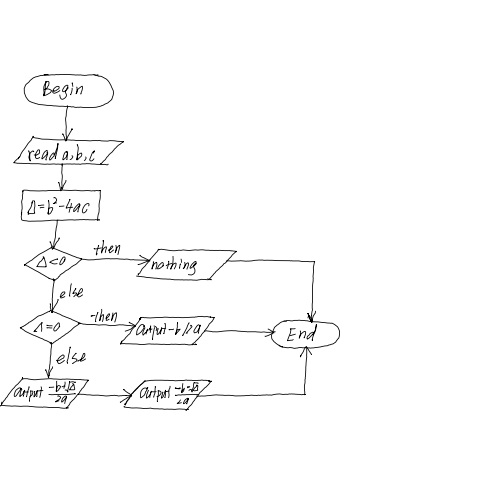 Begin
read a,b,c
Δ=b²-4ac
Δ<0
then
nothing
else
Δ=0
then
Output -b/2a
End
else
output (-b+√Δ)/2a
output (-b-√Δ)/2a